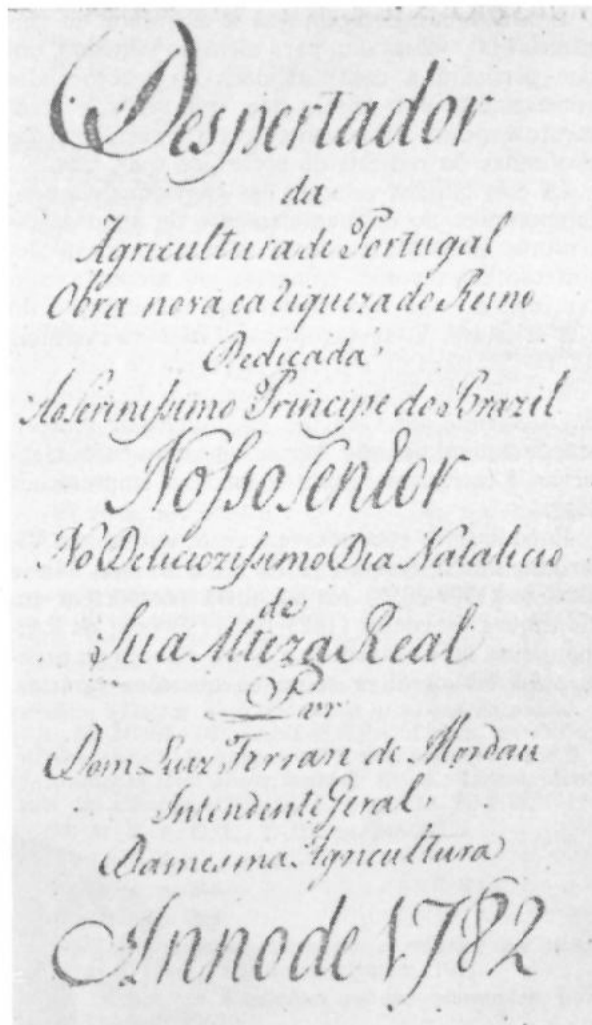 Despertador
da
Agricultura de Portugal
Obra nova, e a Riqueza do Reino
Dedicada
Ao Serinissimo Principe do Brazil
Nosso Senhor
No Deliciozissimo Dia Natalicio
de
Sua Alteza Real
Por
Dom Luiz Ferrari de Mordau
Intendente Geral
Da mesma Agricultura
Anno de 1782